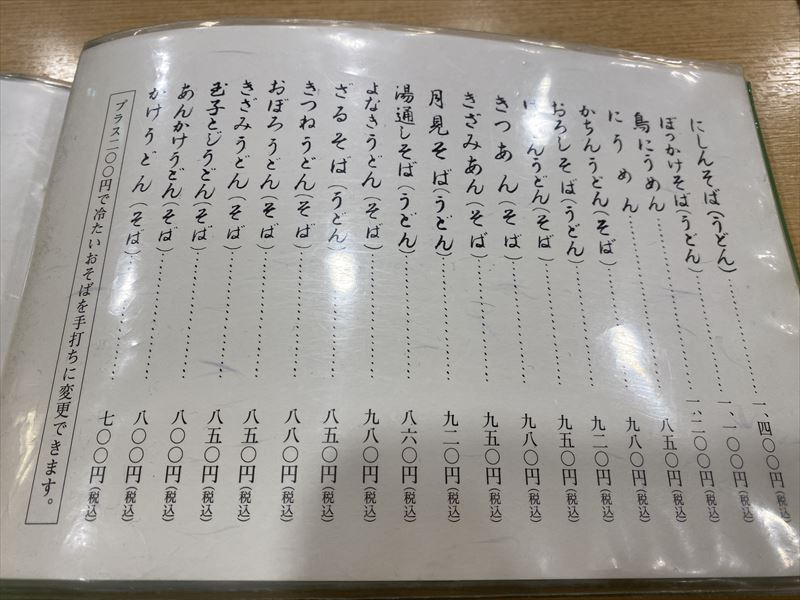 にしんそば(うどん)……………一、四〇〇円(税込)
ぼっかけそば(うどん)……………一、一〇〇円(税込)
鳥にうめん……………一、二〇〇円(税込)
にうめん……………八五〇円(税込)
かちんうどん(そば)……………九八〇円(税込)
おろしそば(うどん)……………九二〇円(税込)
うどん(そば)……………九五〇円(税込)
きつあん(そば)……………九八〇円(税込)
きざみあん(そば)……………九五〇円(税込)
月見そば(うどん)……………九二〇円(税込)
湯通しそば(うどん)……………八六〇円(税込)
よなきうどん(そば)……………九八〇円(税込)
ざるそば(うどん)……………八五〇円(税込)
きつねうどん(そば)……………八八〇円(税込)
おぼろうどん(そば)……………八五〇円(税込)
きざみうどん(そば)……………八五〇円(税込)
玉子とじうどん(そば)……………八〇〇円(税込)
あんかけうどん(そば)……………八〇〇円(税込)
かけうどん(そば)……………七〇〇円(税込)
プラス二〇〇円で冷たいおそばを手打ちに変更できます。